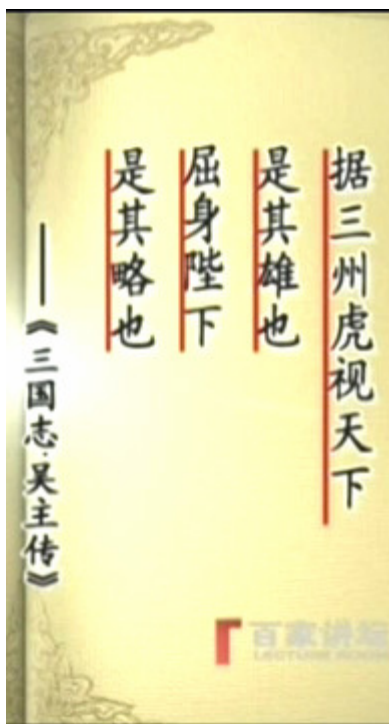 据三州虎视天下
是其雄也
屈身陛下
是其略也
——《三国志·吴主传》
百家讲坛
LECTURE ROOM